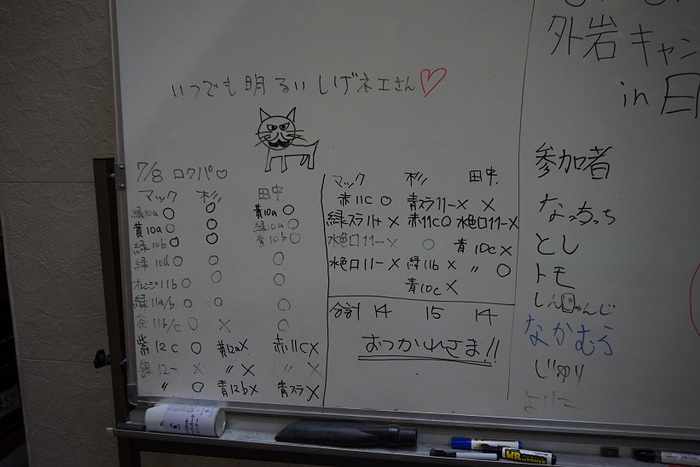 いつでも明るいしげネエさん♡
7/8 ロクパ♡
マック 杉 田中
緑10a ○ ○ 黄10a ○
黄10a ○ ○ 緑10a ○
緑10b ○ ○ 黄10b ○
緑10d ○ ○ ○
オレンジ11b ○ ○ ○
緑11a/b ○ ○ ○
茶11b/c ○ × ○
紫12c ○ 青12a× 赤11c×
緑12- × 〃 × ×
〃 ○ 青12b× 青スラ×
マック 杉 田中
赤11c ○ 青スラ11- × ×
緑スラ11+ × 赤11c○ 水色口11-×
水色口11- × ○ 青10c×
水色口11- × 緑11b × 〃 ○
青10c×
合計 14 15 14
おつかれさま!!
外岩キャン
in
参加者
なっちっち
とし
トモ
なかむら
じゅり